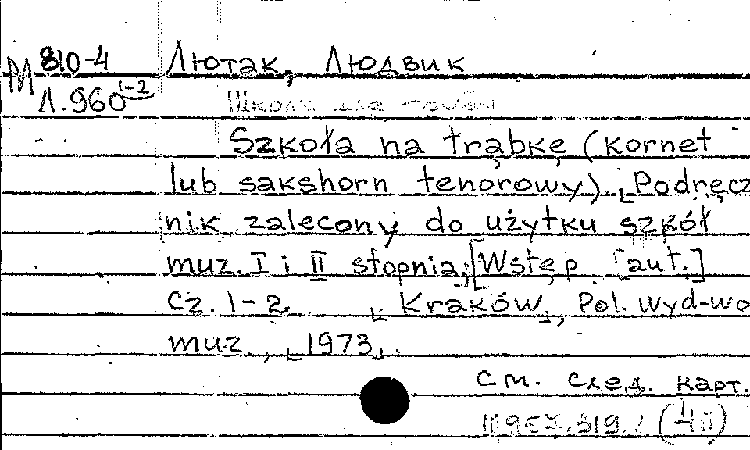 М 810-4 Лютак, Людвик
Л.960 1-2
Школа для трубы
Szkoła na trąbkę (kornet
lub sakshorn tenorowy). Podręcz
nik zalecony do użytku szkół
muz. I i II stopnia, [Wstęp [aut.]
Cz. 1-2. Kraków, Pol. wyd-wo
muz., 1973.
См. след. карт.
(4п)